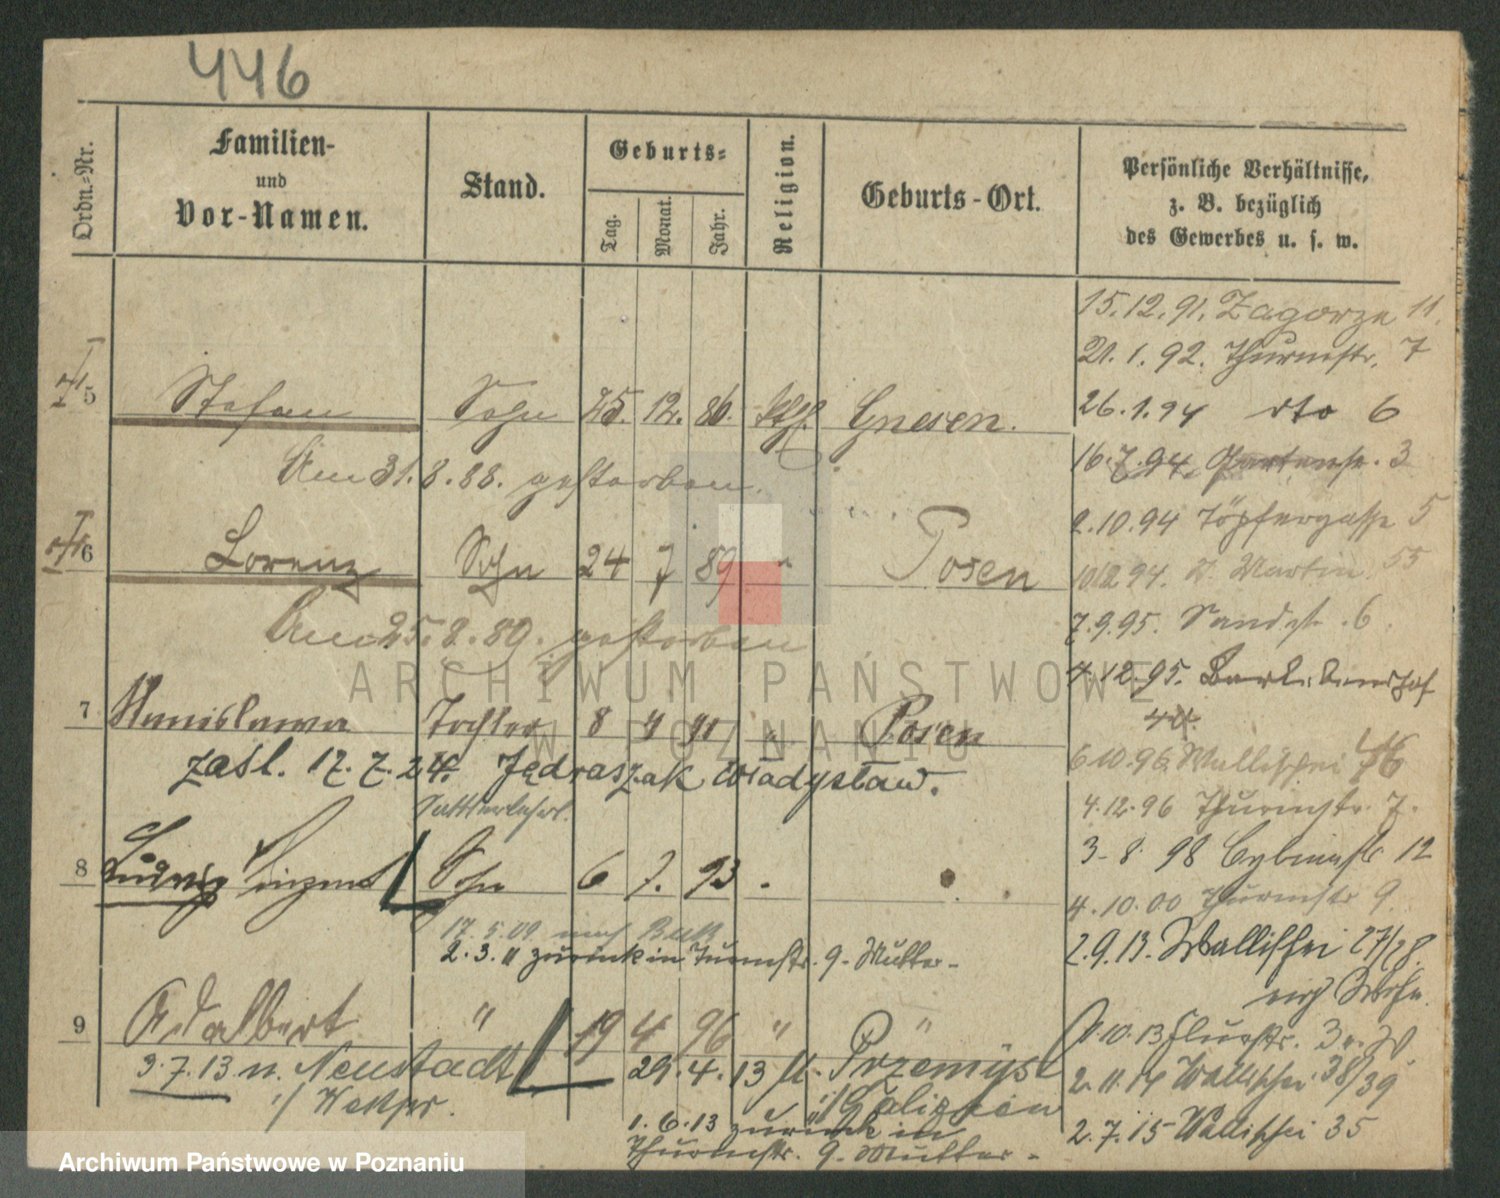 446
Ordn.-Nr.
Familien-
und
Vor-Namen.
Stand.
Geburts-
Tag.
Monat.
Jahr.
Religion.
Geburts-Ort.
Persönliche Verhältnisse,
z. B. bezüglich
des Gewerbes u. s. w.
15.12.91. Zagorze 11.
21.1.92. Thurmstr. 7
5 Stefan Sohn 25. 12. 86. kth. Gnesen.
26.1.94 dto 6
Am 31.8.88. gestorben.
16.7.94. Gartenstr. 3
2.10.94 Töpfergasse 5
6 Lorenz Sohn 24 7 89 " Posen
10.12.94. St. Martin 55
Am 25.8.89. gestorben
7.9.95. Sandstr. 6.
4.12.95.
7 Stanislawa Tochter 8 4 91 " Posen
zasl. 17.7.24. Jędraszak Władysław.
6.10.96. Wallischei 76
Sattlerlehrl.
4.12.96 Thurmstr. 7.
8 Ludwig Vinzent Sohn 6 7. 93 "
3-8 98 Cybinastr 12
4.10.00 Thurmstr 9.
17.5.09. nach Buk
2.3.11 zurück in Turmstr. 9. Mutter-
2.9.13. Wallischei 27/28.
eig Wohn.
9 Adalbert " 19 4 96 " "
1.10.13 Flurstr. 3
3.7.13 n. Neustadt
i/ Westpr.
29.4.13 n. Przemysl
i/Galizien
2.11.14 Wallischei 38/39
1.6.13 zurück in
Thurmstr. 9. Mutter-
2.7.15 Wallischei 35
ARCHIWUM PAŃSTWOWE
W POZNANIU
Archiwum Państwowe w Poznaniu